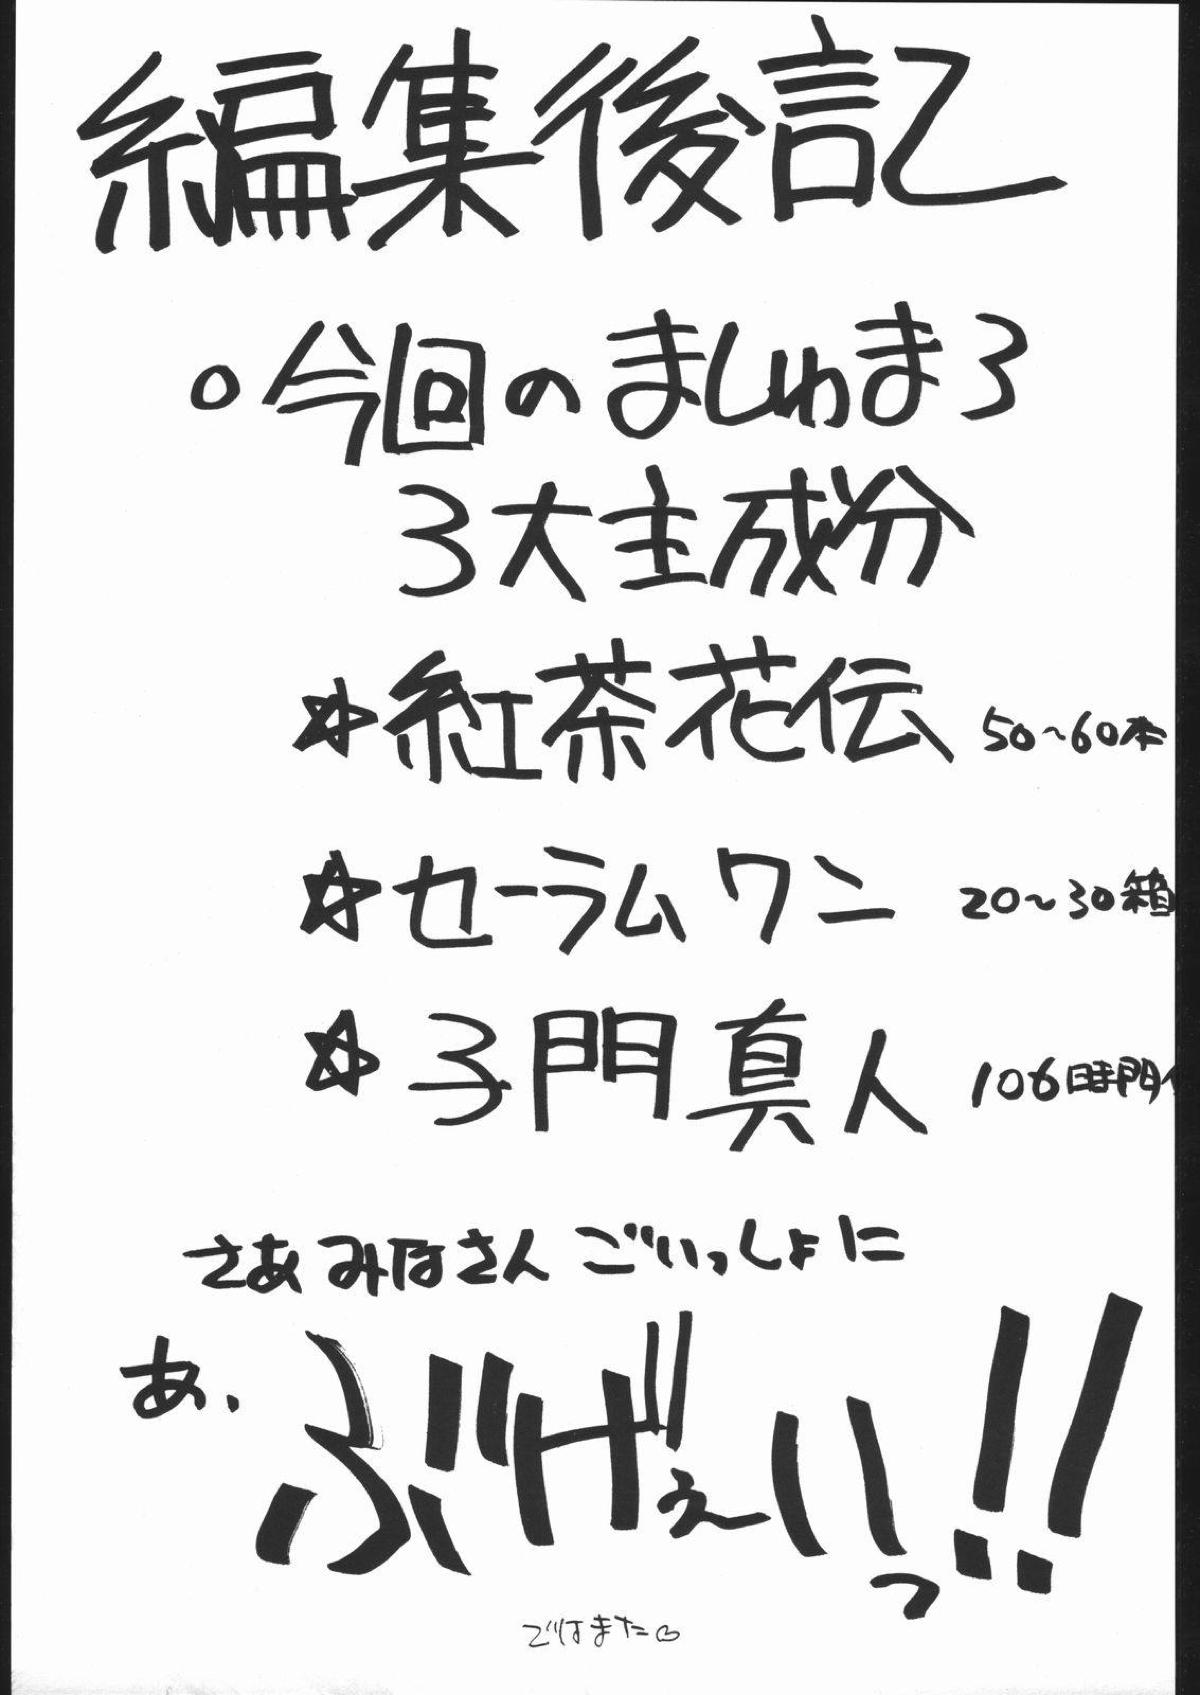 編集後記
○今回のましゅまろ
3大主成分
☆紅茶花伝 50~60本
☆セーラムワン 20~30箱
☆子門真人 106時間
さあみなさんごいっしょに
あ、ぶげぇいっ!!
ではまた♡